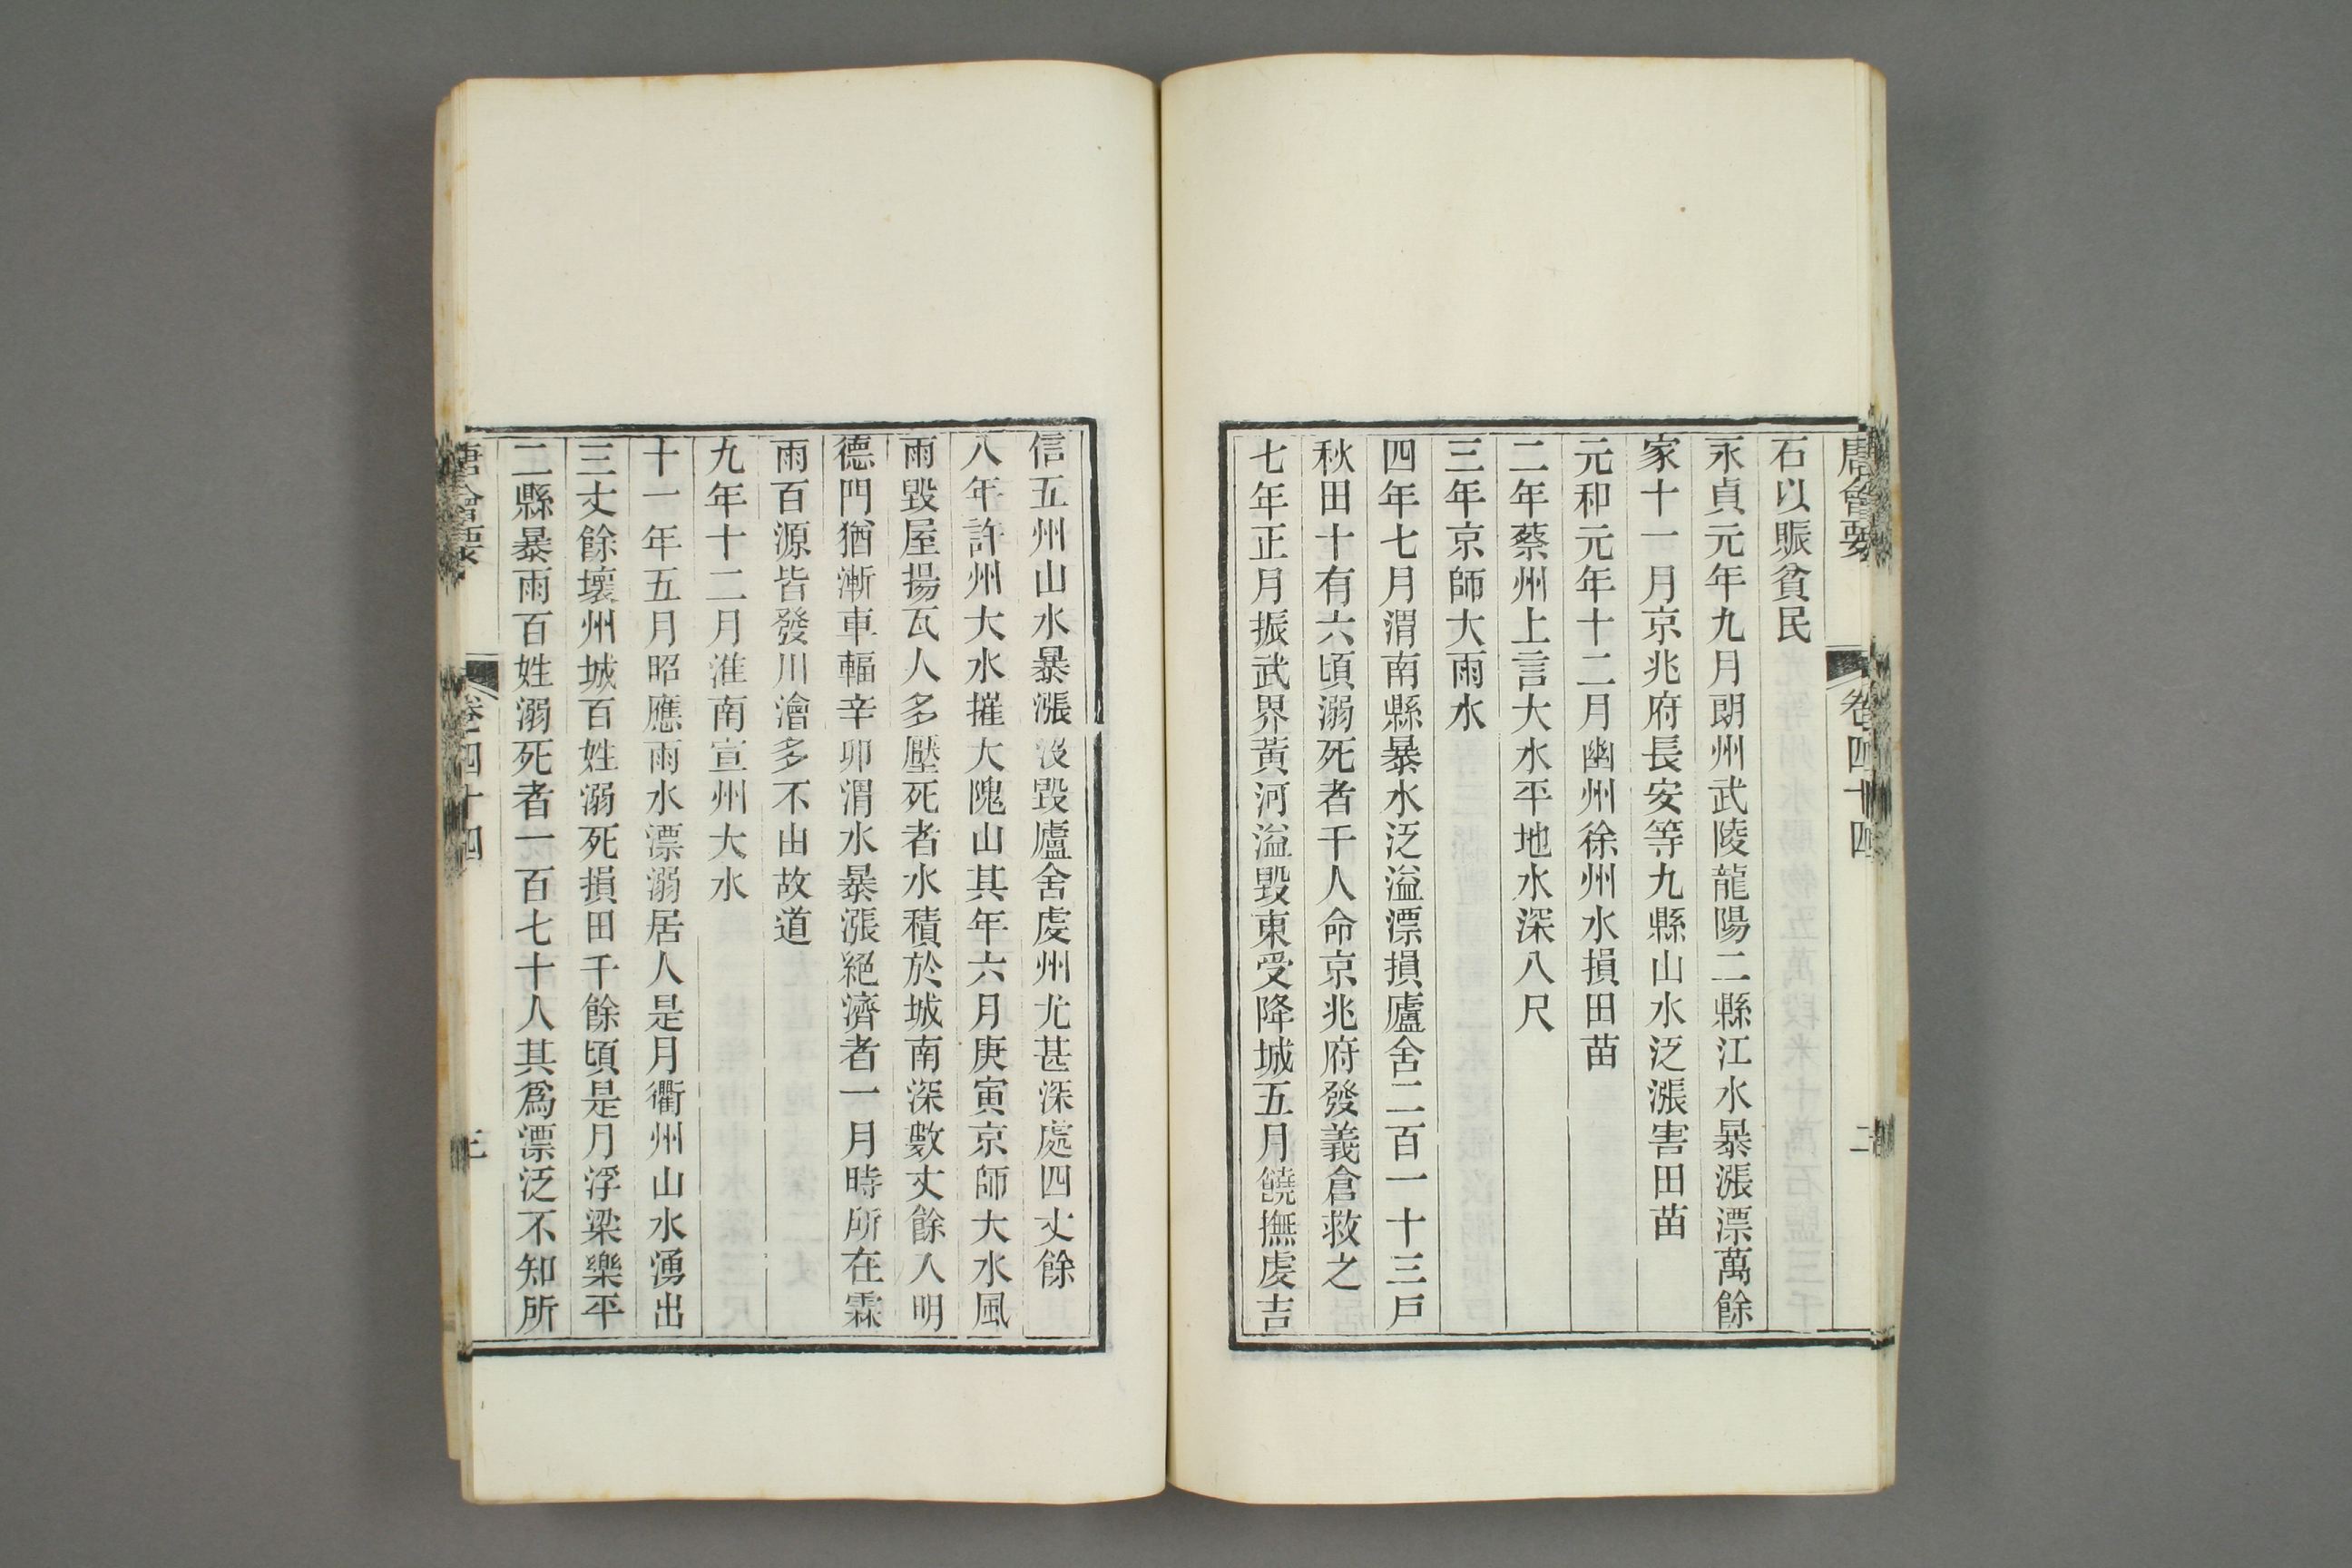 唐會要 卷四十四 二
石以賑貧民
永貞元年九月朗州武陵龍陽二縣江水暴漲漂萬餘
家十一月京兆府長安等九縣山水泛漲害田苗
元和元年十二月幽州徐州水損田苗
二年蔡州上言大水平地水深八尺
三年京師大雨水
四年七月渭南縣暴水泛溢漂損廬舍二百一十三戶
秋田十有六頃溺死者千人命京兆府發義倉救之
七年正月振武界黃河溢毀東受降城五月饒撫虔吉
信五州山水暴漲沒毀廬舍虔州尤甚深處四丈餘
八年許州大水摧大隗山其年六月庚寅京師大水風
雨毀屋揚瓦人多壓死者水積於城南深數丈餘入明
德門猶漸車輻辛卯渭水暴漲絕濟者一月時所在霖
雨百源皆發川澮多不由故道
九年十二月淮南宣州大水
十一年五月昭應雨水漂溺居人是月衢州山水湧出
三丈餘壞州城百姓溺死損田千餘頃是月浮梁樂平
二縣暴雨百姓溺死者一百七十人其為漂泛不知所
唐會要 卷四十四 三